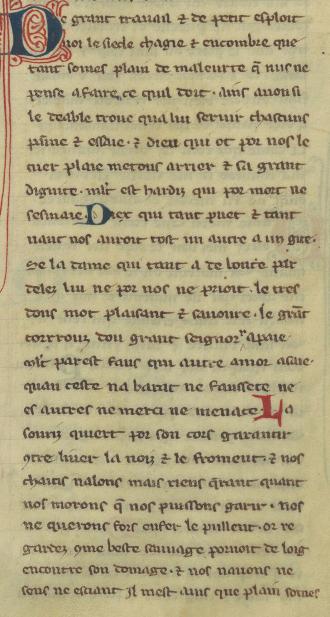 De grant travail & de petit esploit
voi le siecle chargie & encombre que
tant somes plain de maleurte q̃ nus ne
pense a faire ce quil doit · ains avons si
le deable trove qua lui servir chascuns
paine & essaie · & dieu qui ot por nos le
cuer plaie metons arrier & sa grant
dignite · mlt est hardiz qui por mort ne
sesmaie · Diex qui tant puet & tant
vaut nos auroit tost un autre a un giete ·
Se la dame qui tant a de bonte par
delez lui ne por nos ne prioit · le tres
dous mot plaisant & savoure · le grãt
corrrouz dou grant seignor apaie
mlt parest faus qui autre amor asaie ·
quan ceste na barat ne faussete ne
es autres ne merci ne menace · La
souriz quiert por son cors garantir
9tre liver la noiz & le froment · & nos
chaitis nalons mais riens q̃rant quant
nos morons q̃ nos puissons garir · nos
ne querons fors enfer le pullent · or re
gardez 9me beste sauvage porvoit de loig
encontre son domage · & nos navons ne
sens ne esciant Jl mest avis que plain somes